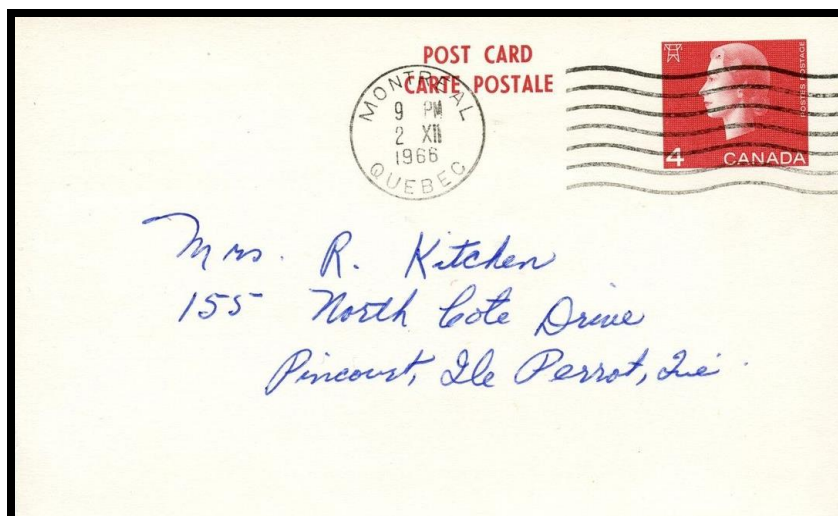 POST CARD
CARTE POSTALE
MONTREAL
9 PM
2 XII
1966
QUEBEC
POSTES POSTAGE
4 CANADA
Mrs. R. Kitchen
155 North Cote Drive
Pincourt, Ile Perrot, Que.